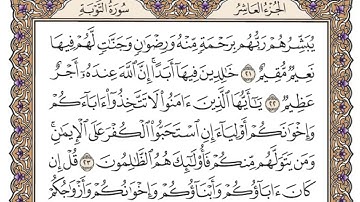 الجزء العاشر سورة التوبة
يُبَشِّرُهُمْ رَبُّهُم بِرَحْمَةٍ مِّنْهُ وَرِضْوَٰنٍ وَجَنَّٰتٍ لَّهُمْ فِيهَا
نَعِيمٌ مُّقِيمٌ ٢١ خَٰلِدِينَ فِيهَآ أَبَدًا ۚ إِنَّ ٱللَّهَ عِندَهُۥٓ أَجْرٌ
عَظِيمٌ ٢٢ يَٰٓأَيُّهَا ٱلَّذِينَ ءَامَنُوا۟ لَا تَتَّخِذُوٓا۟ ءَابَآءَكُمْ
وَإِخْوَٰنَكُمْ أَوْلِيَآءَ إِنِ ٱسْتَحَبُّوا۟ ٱلْكُفْرَ عَلَى ٱلْإِيمَٰنِ ۚ
وَمَن يَتَوَلَّهُم مِّنكُمْ فَأُو۟لَٰٓئِكَ هُمُ ٱلظَّٰلِمُونَ ٢٣ قُلْ إِن
كَانَ ءَابَآؤُكُمْ وَأَبْنَآؤُكُمْ وَإِخْوَٰنُكُمْ وَأَزْوَٰجُكُمْ